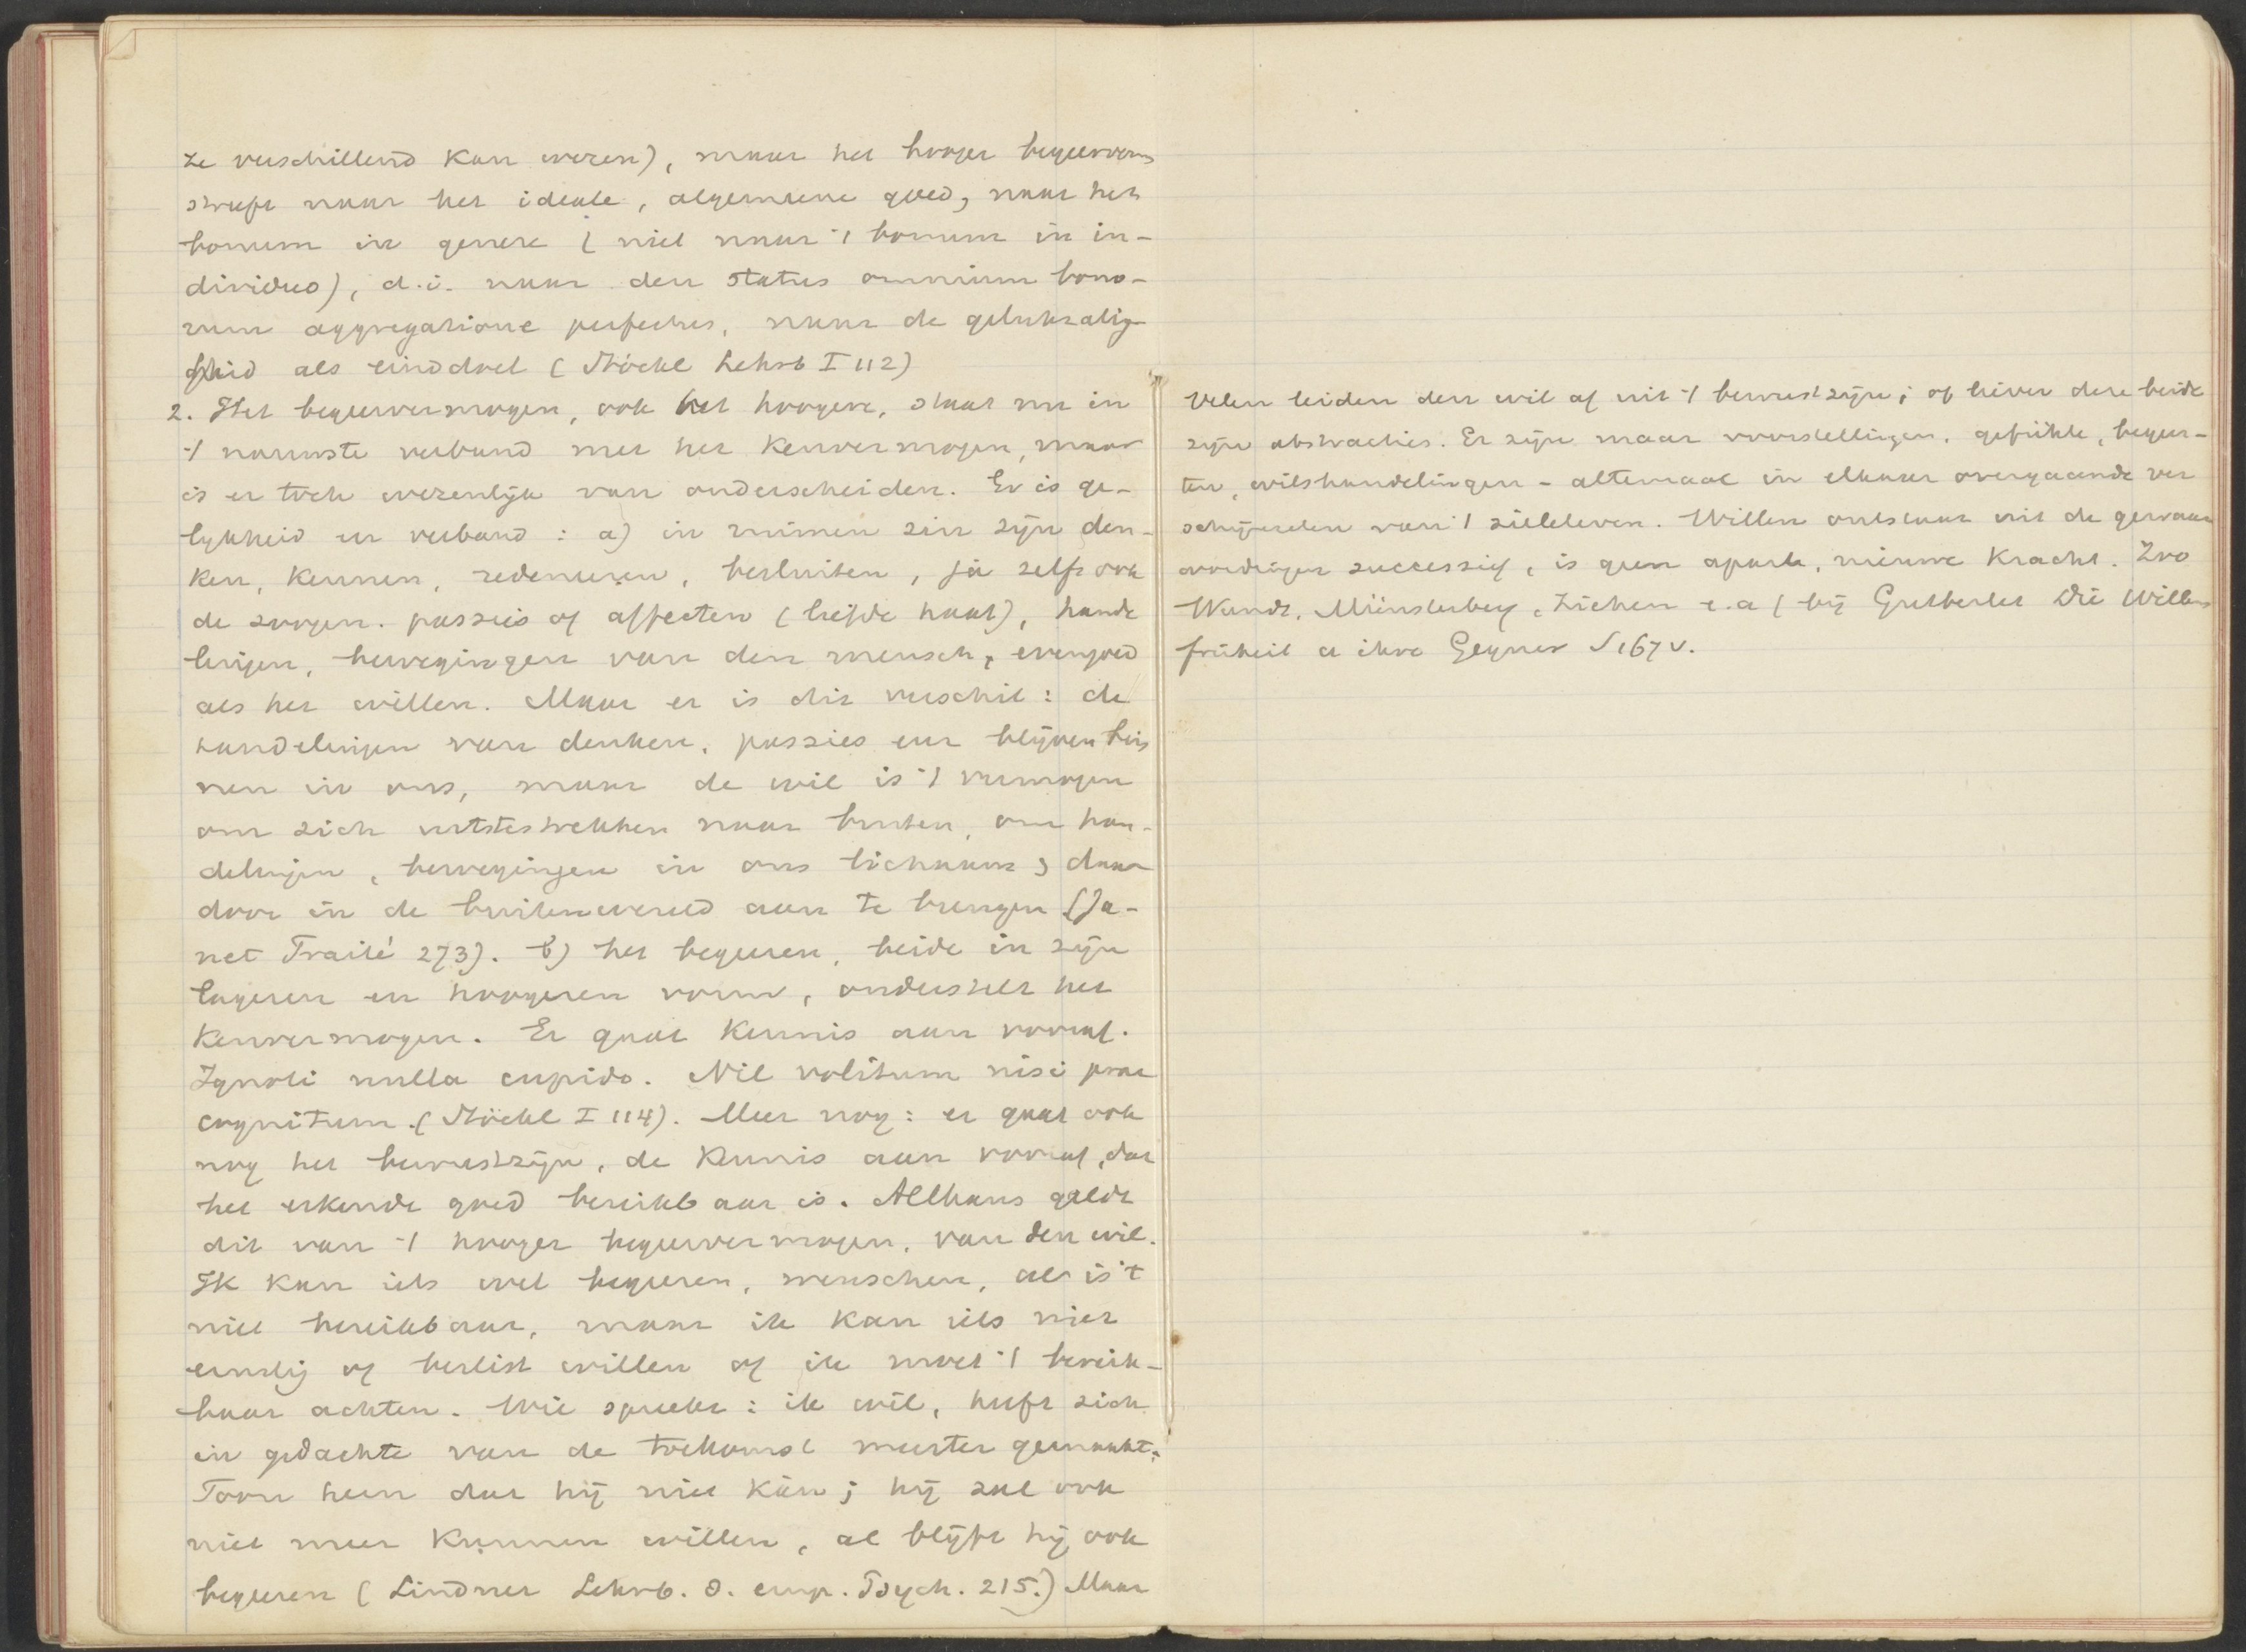 ze verschillend kan wezen), maar het hooger begeerverm
streeft naar het ideale, algemeene goed, naar het
bonum in genere (niet naar 't bonum in in-
dividuo), d.i. naar den status omnium bono-
rum aggregatione perfectus, naar de gelukzalig-
heid als einddoel (Stöckl Lehrb I 112)
2. Het begeervermogen, ook het hoogere, staat nu in
't nauwste verband met het kenvermogen, maar
is er toch wezenlijk van onderscheiden. Er is ge-
lijkheid en verband: a) in ruimen zin zijn den-
ken, kennen, redeneeren, besluiten, ja zelfs ook
de zoogen. passies of affecten (liefde haat), hande
lingen, bewegingen van den mensch, evengoed
als het willen. Maar er is dit verschil: de
handelingen van denken, passies enz blijven bin
nen in ons, maar de wil is 't vermogen
om zich uittestrekken naar buiten, om han-
delingen, bewegingen in ons lichaam, daar
door in de buitenwereld aan te brengen (Ja-
net Traité 273). b) het begeeren, beide in zijn
lageren en hoogeren vorm, onderstelt het
kenvermogen. Er gaat kennis aan vooraf.
Ignoti nulla cupido. Nil volitum nisi prae
cognitum. (Stöckl I 114). Meer nog: er gaat ook
nog het bewustzijn, de kennis aan vooraf, dat
het erkende goed bereikbaar is. Althans geldt
dit van 't hooger begeervermogen, van den wil.
Ik kan iets wel begeeren, wenschen, al is 't
niet bereikbaar, maar ik kan iets niet
ernstig of beslist willen of ik moet 't bereik-
baar achten. Wie spreekt: ik wil, heeft zich
in gedachte van de toekomst meester gemaakt:
Toon hem dat hij niet kàn; hij zal ook
niet meer kunnen willen, al blijft hij ook
begeeren (Lindner Lehrb. d. emp. Psych. 215.) Maar
Velen leiden den wil af uit 't bewustzijn; of liever deze beide
zijn abstracties. Er zijn maar voorstellingen, gefühle, begeer-
ten, wilshandelingen - altemaal in elkaar overgaande ver
schijnselen van 't zieleleven. Willen ontstaat uit de gewaar
wordingen successief, is geen aparte, nieuwe kracht. Zoo
Wundt, Münsterberg, Ziehen e.a (bij Gutberlet Die Willens
freiheit u ihre Gegner S 167 v.